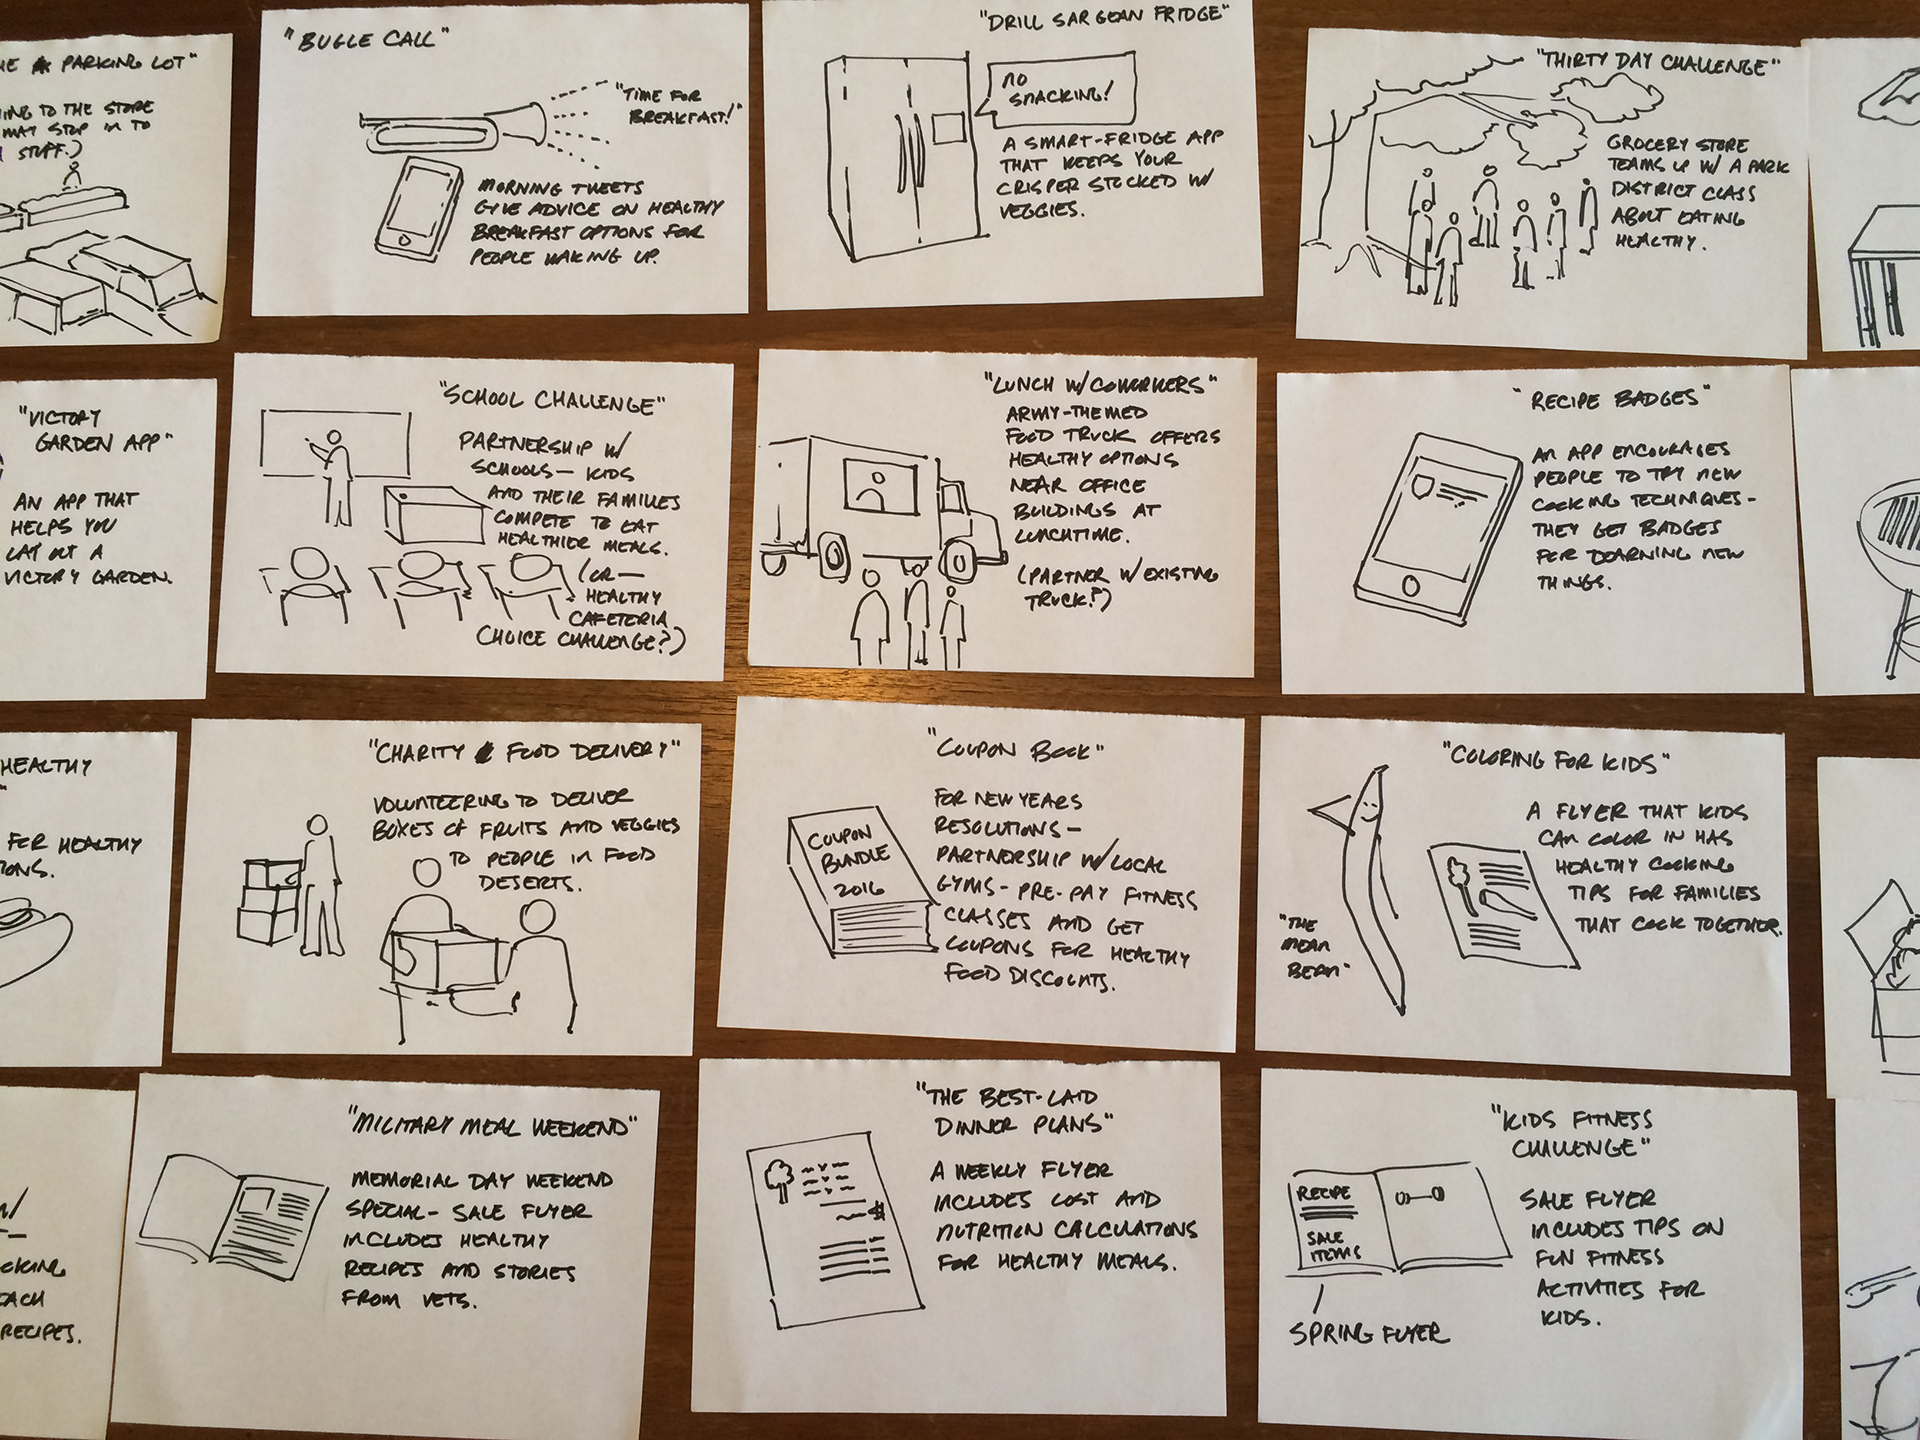 PARKING LOT"
TO THE STORE
MAY STOP IN TO
STUFF.)
"BUGLE CALL"
"TIME FOR
BREAKFAST!"
MORNING TWEETS
GIVE ADVICE ON HEALTHY
BREAKFAST OPTIONS FOR
PEOPLE WAKING UP.
"DRILL SARGEAN FRIDGE"
NO
SNACKING!
A SMART-FRIDGE APP
THAT KEEPS YOUR
CRISPER STOCKED W/
VEGGIES.
"THIRTY DAY CHALLENGE"
GROCERY STORE
TEAMS UP W/ A PARK
DISTRICT CLASS
ABOUT EATING
HEALTHY.
"VICTORY
GARDEN APP"
AN APP THAT
HELPS YOU
LAY OUT A
VICTORY GARDEN.
"SCHOOL CHALLENGE"
PARTNERSHIP W/
SCHOOLS— KIDS
AND THEIR FAMILIES
COMPETE TO EAT
HEALTHIER MEALS.
(OR—
HEALTHY
CAFETERIA
CHOICE CHALLENGE?)
"LUNCH W/COWORKERS"
ARMY-THEMED
FOOD TRUCK OFFERS
HEALTHY OPTIONS
NEAR OFFICE
BUILDINGS AT
LUNCHTIME.
(PARTNER W/ EXISTING
TRUCK?)
"RECIPE BADGES"
AN APP ENCOURAGES
PEOPLE TO TRY NEW
COOKING TECHNIQUES-
THEY GET BADGES
FOR LEARNING NEW
THINGS.
HEALTHY
"
FOR HEALTHY
"CHARITY FOOD DELIVERY"
VOLUNTEERING TO DELIVER
BOXES OF FRUITS AND VEGGIES
TO PEOPLE IN FOOD
DESERTS.
"COUPON BOOK"
COUPON
BUNDLE
2016
FOR NEW YEARS
RESOLUTIONS—
PARTNERSHIP W/ LOCAL
GYMS- PRE-PAY FITNESS
CLASSES AND GET
COUPONS FOR HEALTHY
FOOD DISCOUNTS.
"COLORING FOR KIDS"
A FLYER THAT KIDS
CAN COLOR IN HAS
HEALTHY COOKING
TIPS FOR FAMILIES
THAT COOK TOGETHER.
"THE
MEAN
BEAN"
W/
RECIPES.
"MILITARY MEAL WEEKEND"
MEMORIAL DAY WEEKEND
SPECIAL- SALE FLYER
INCLUDES HEALTHY
RECIPES AND STORIES
FROM VETS.
"THE BEST-LAID
DINNER PLANS"
A WEEKLY FLYER
INCLUDES COST AND
NUTRITION CALCULATIONS
FOR HEALTHY MEALS.
"KIDS FITNESS
CHALLENGE"
RECIPE
SALE
ITEMS
SALE FLYER
INCLUDES TIPS ON
FUN FITNESS
ACTIVITIES FOR
KIDS.
SPRING FLYER